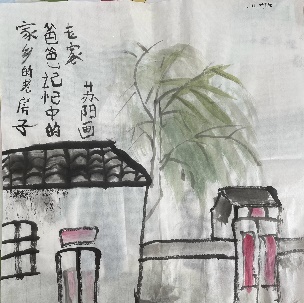 苏阳画
爸爸记忆中的
家乡的老房子